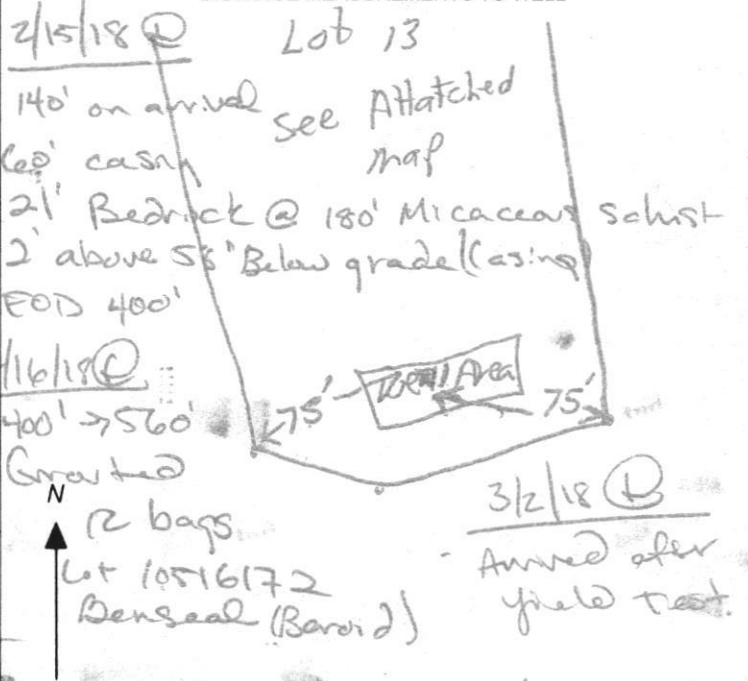 2/15/18
Lot 13
140' on arrival
see Attatched
map
60' casing
21' Bedrock @ 180' Micaceous Schist
2' above 58' Below grade (Casing)
EOD 400'
/16/18
400' → 560'
Grouted
12 bags
Lot 10516172
Benseal (Baroid)
75'
Well Area
75'
3/2/18
Arrived after
yield test.
N